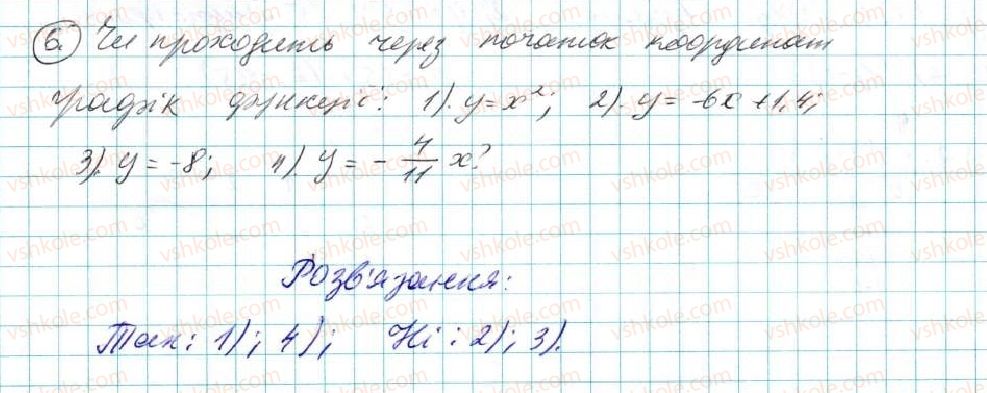 6. Чи проходить через початок координат
графік функції: 1). y = x²; 2). y = -6x + 1,4;
3). y = -8; 4). y = - 4/11 x?
Розв'язання:
Так: 1); 4); Ні: 2); 3).